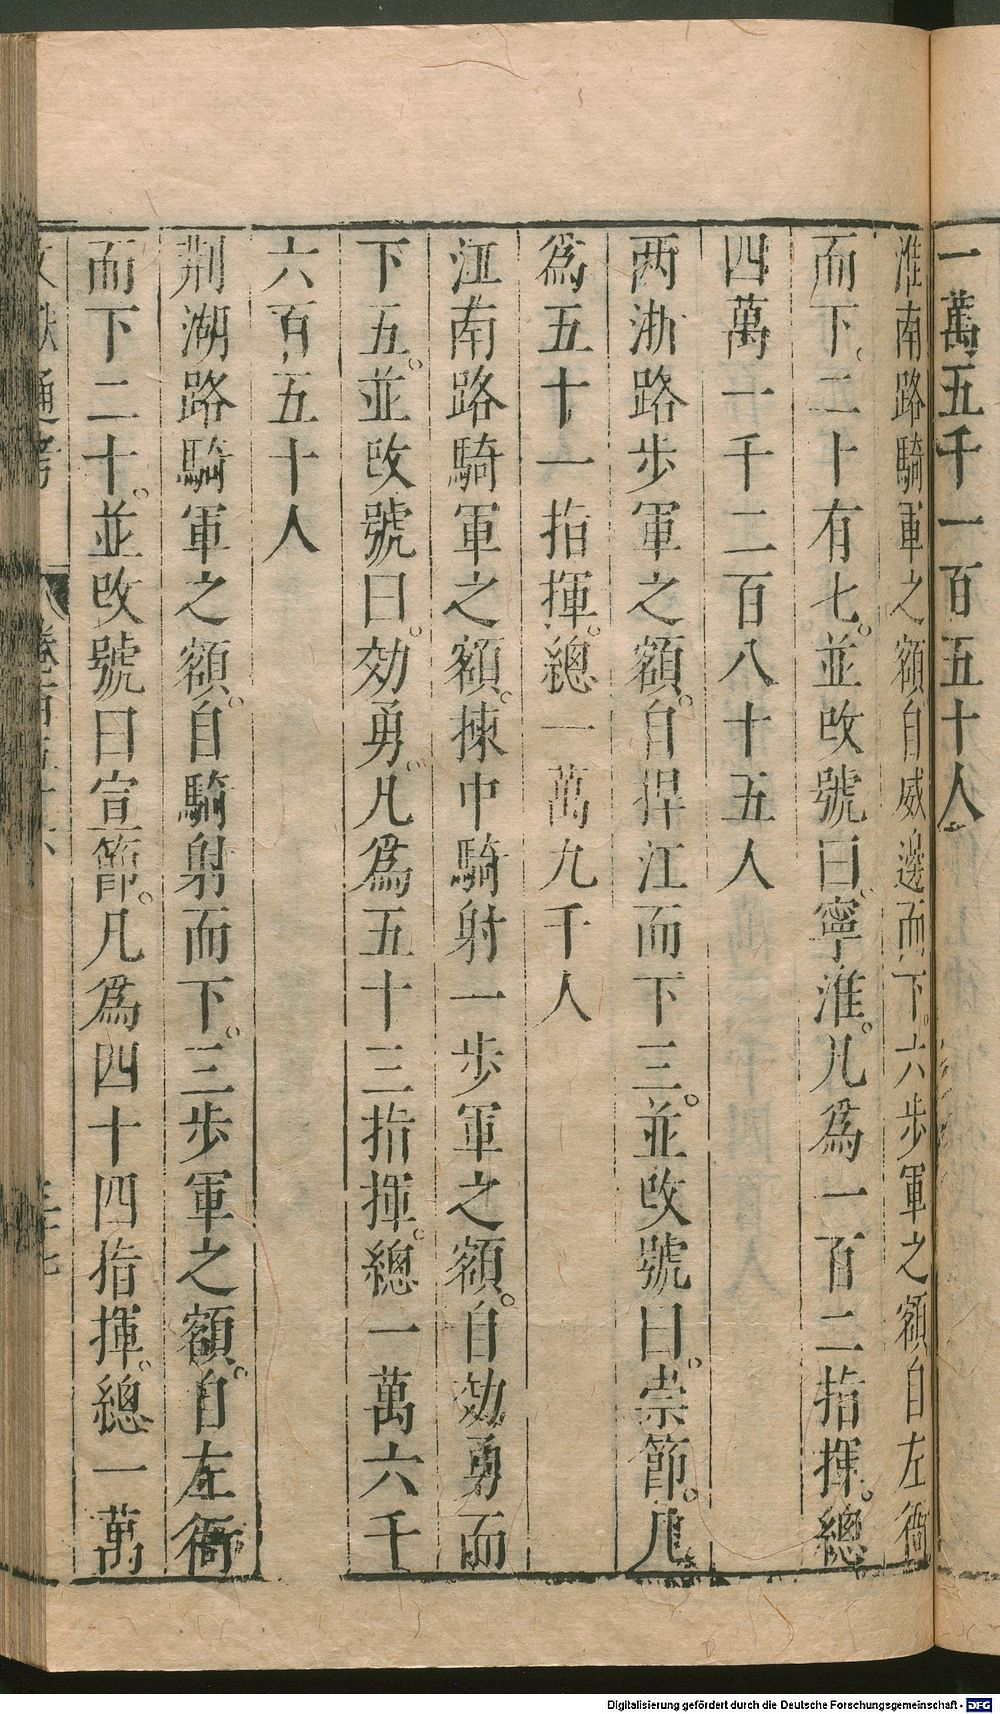 一萬五千一百五十人
淮南路騎軍之額自威邊而下。六步軍之額自左衙
而下。二十有七。並改號曰。寧淮。凡爲一百二指揮。總
四萬一千二百八十五人
两浙路步軍之額。自捍江而下三。並改號曰。崇節。凡
爲五十一指揮。總一萬九千人
江南路騎軍之額。揀中騎射一步軍之額。自効勇而
下五。並改號曰。効勇。凡爲五十三指揮。總一萬六千
六百五十人
荆湖路騎軍之額。自騎射而下。三步軍之額。自左衙
而下二十。並改號曰宣節。凡爲四十四指揮。總一萬
通考
Digitalisierung gefördert durch die Deutsche Forschungsgemeinschaft - DFG